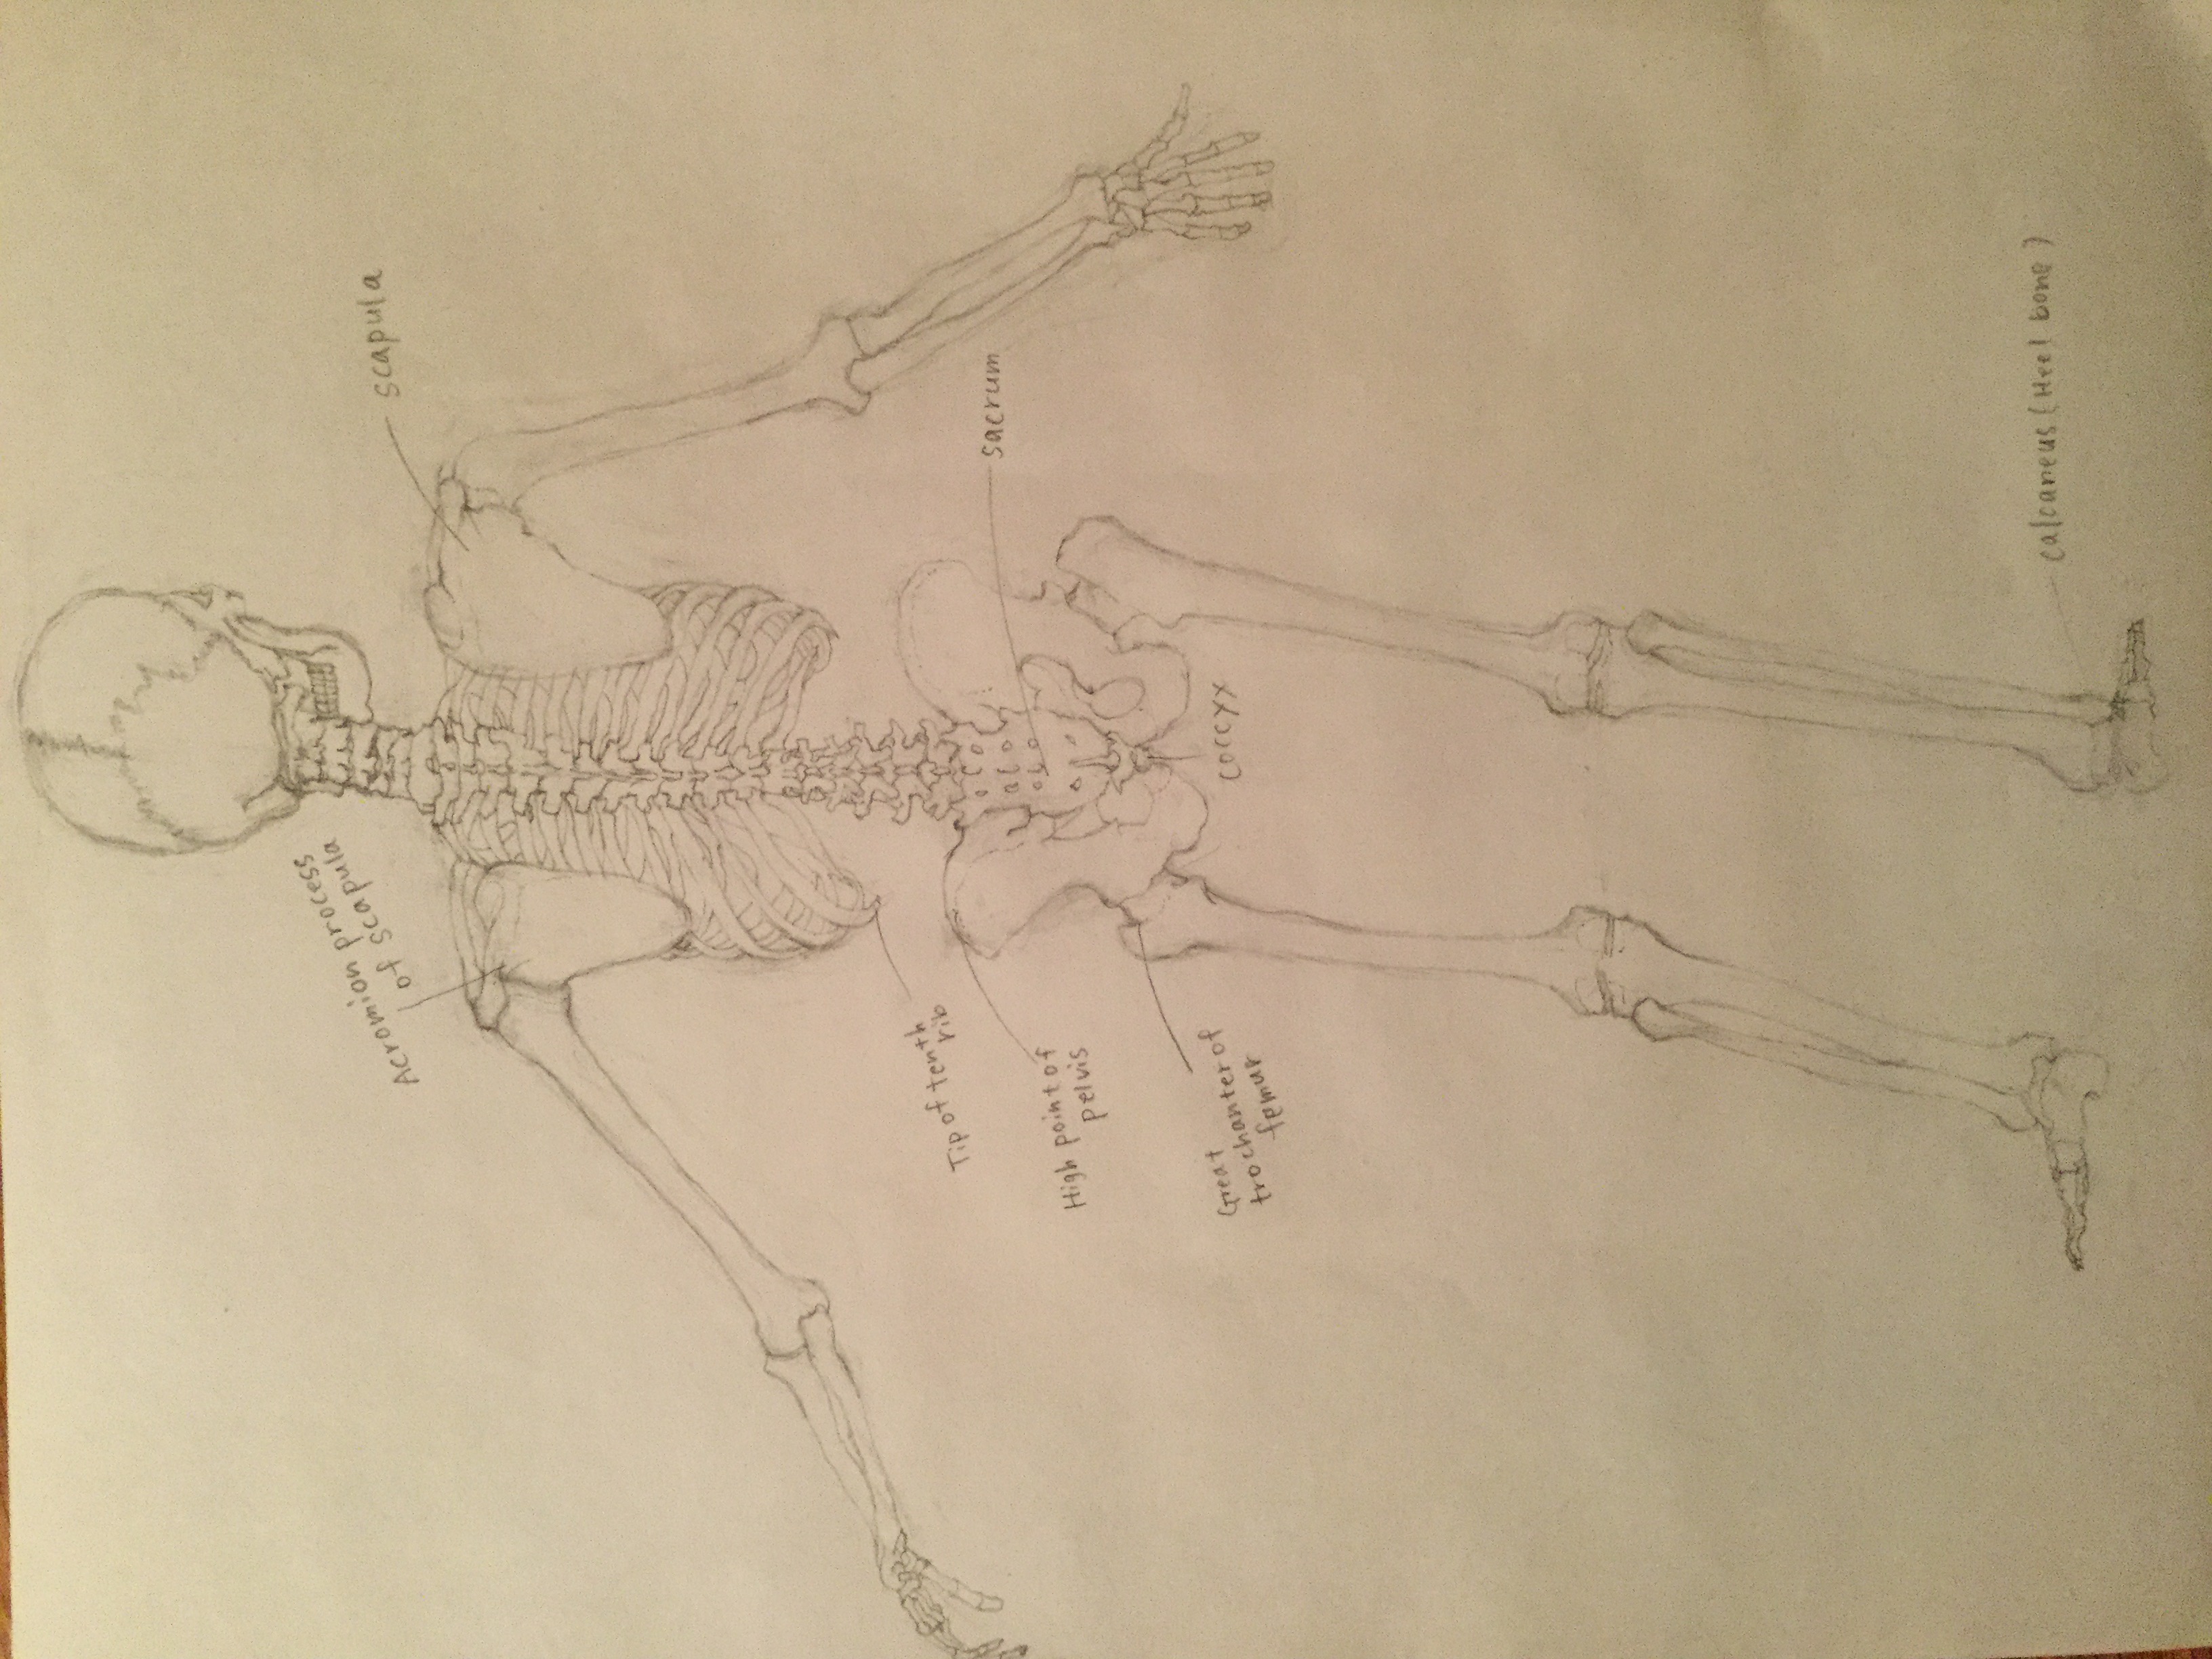 Acromion process
of scapula
scapula
Tip of tenth
rib
High point of
pelvis
sacrum
Great
trochanter of
femur
coccyx
calcaneus (Heel bone)